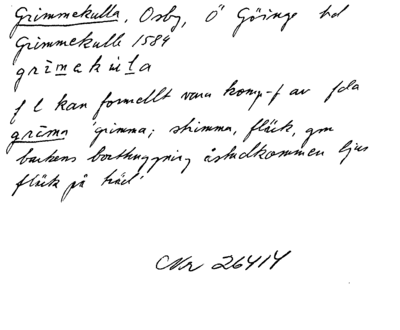 Grimmekulla, Osby, Ö Göinge hd
Grimmekulle 1584
grimakula
f l kan formellt vara komp-f av fda
grima 'grimma; strimma, fläck, gm
barkens borthuggning åstadkommen ljus
fläck på träd'
Nr 26414